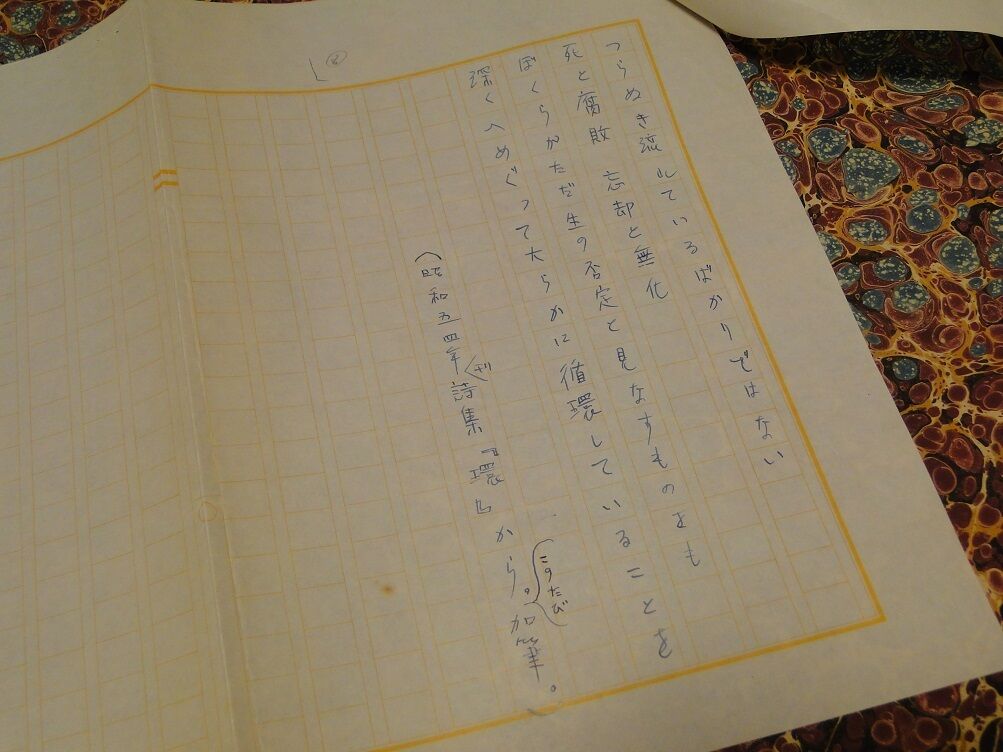 つらぬき流れているばかりではない
死と腐敗 忘却と無化
ぼくらがただ生の否定と見なすものをも
深くへめぐって大らかに循環していることを
(昭和五四年刊詩集『環』から。このたび加筆。)